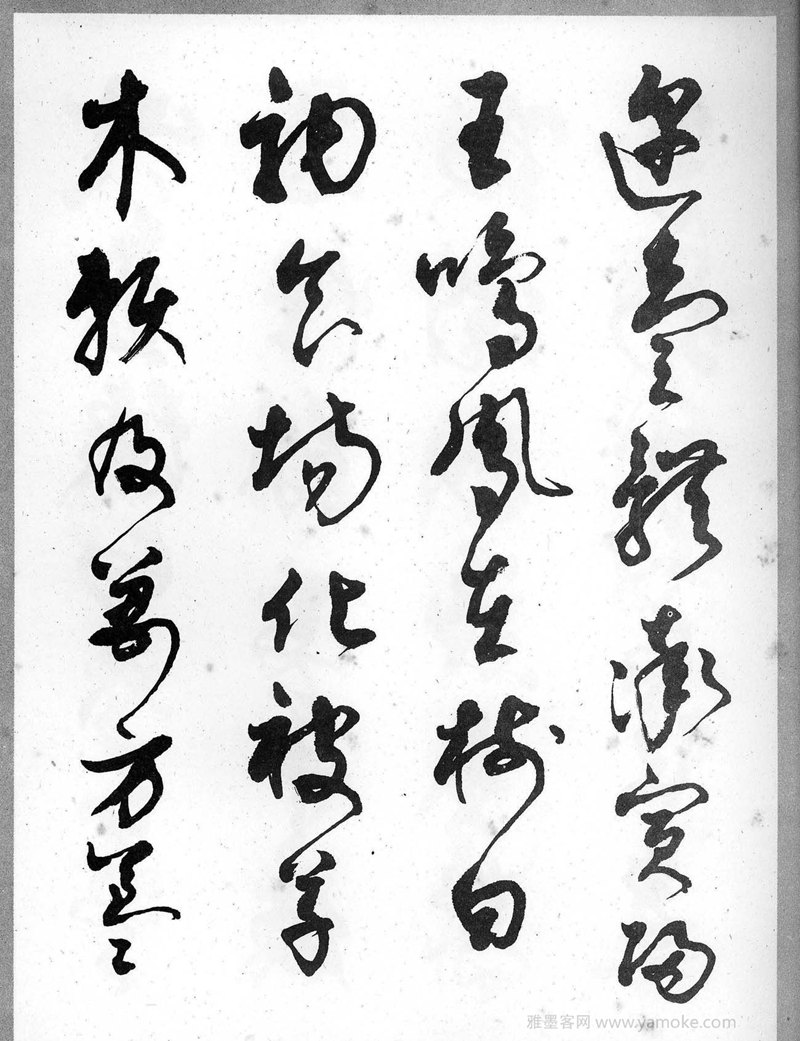 迩壹體率賓歸
王鳴鳳在樹白
駒食場化被草
木賴及萬方蓋
雅墨客网 www.yamoke.com